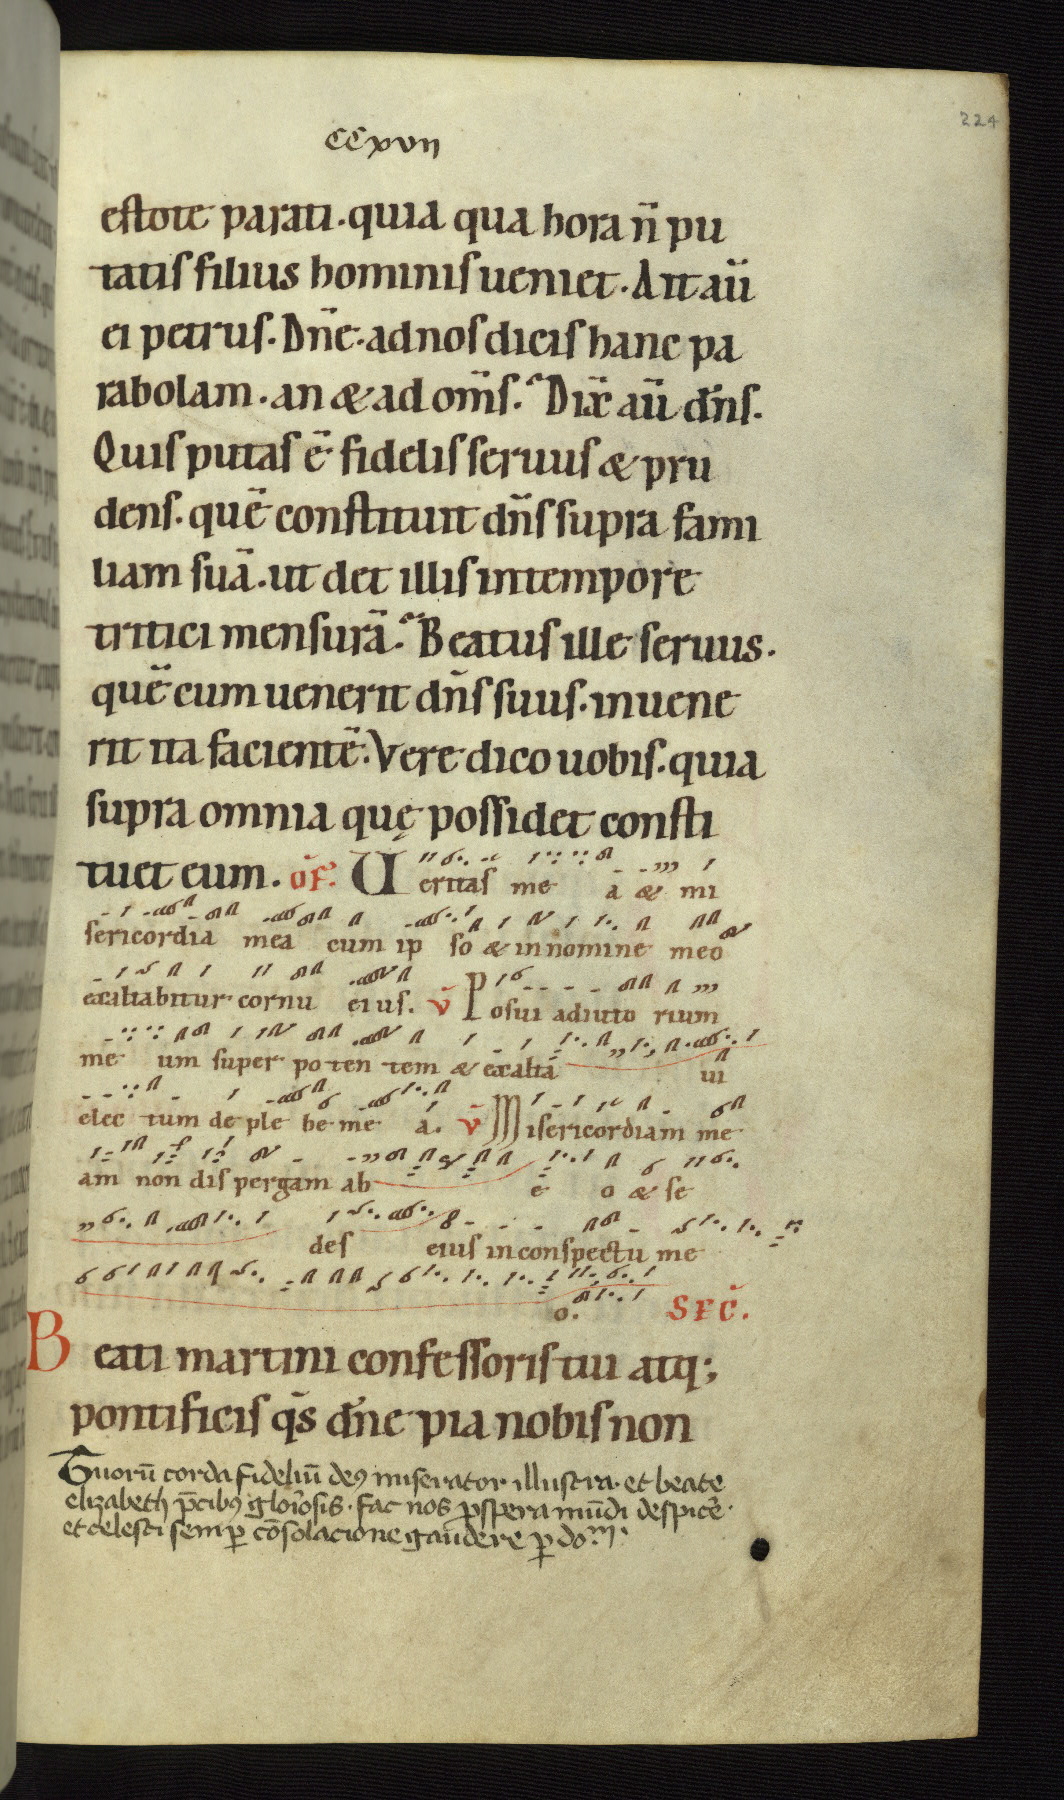 CCxvii
224
estote parati. quia qua hora n̄ pu
tatis filius hominis ueniet. Ait aū
ei petrus. Dn̄e. ad nos dicis hanc pa
rabolam. an & ad om̄s. Dix̄ aū dn̄s.
Quis putas ē fidelis seruus & pru
dens. quē constituit dn̄s supra fami
liam suā. ut det illis in tempore
tritici mensurā. Beatus ille seruus.
quē cum uenerit dn̄s suus. inuene
rit ita facientē. Vere dico uobis. quia
supra omnia quę possidet consti
tuet eum. of̄. Ueritas me a & mi
sericordia mea cum ip so & in nomine meo
exaltabitur cornu eius. v̄ Posui adiuto rium
me um super po ten tem & exalta
ui
elec tum de ple be me a. v̄ Misericordiam me
am non dis pergam ab e o & se
des eius in conspectu me
o. SEC̄.
Beati martini confessoris tui atq;
pontificis q̄s dn̄e pia nobis non
Tuorū corda fideliū deꝯ miserator illustra. et beate
elizabeth p̄cibꝯ gło͞iosis. fac nos ꝓspera mūdi despicē.
et celesti semꝑ cōsolacione gaudere ꝑ dom̄.